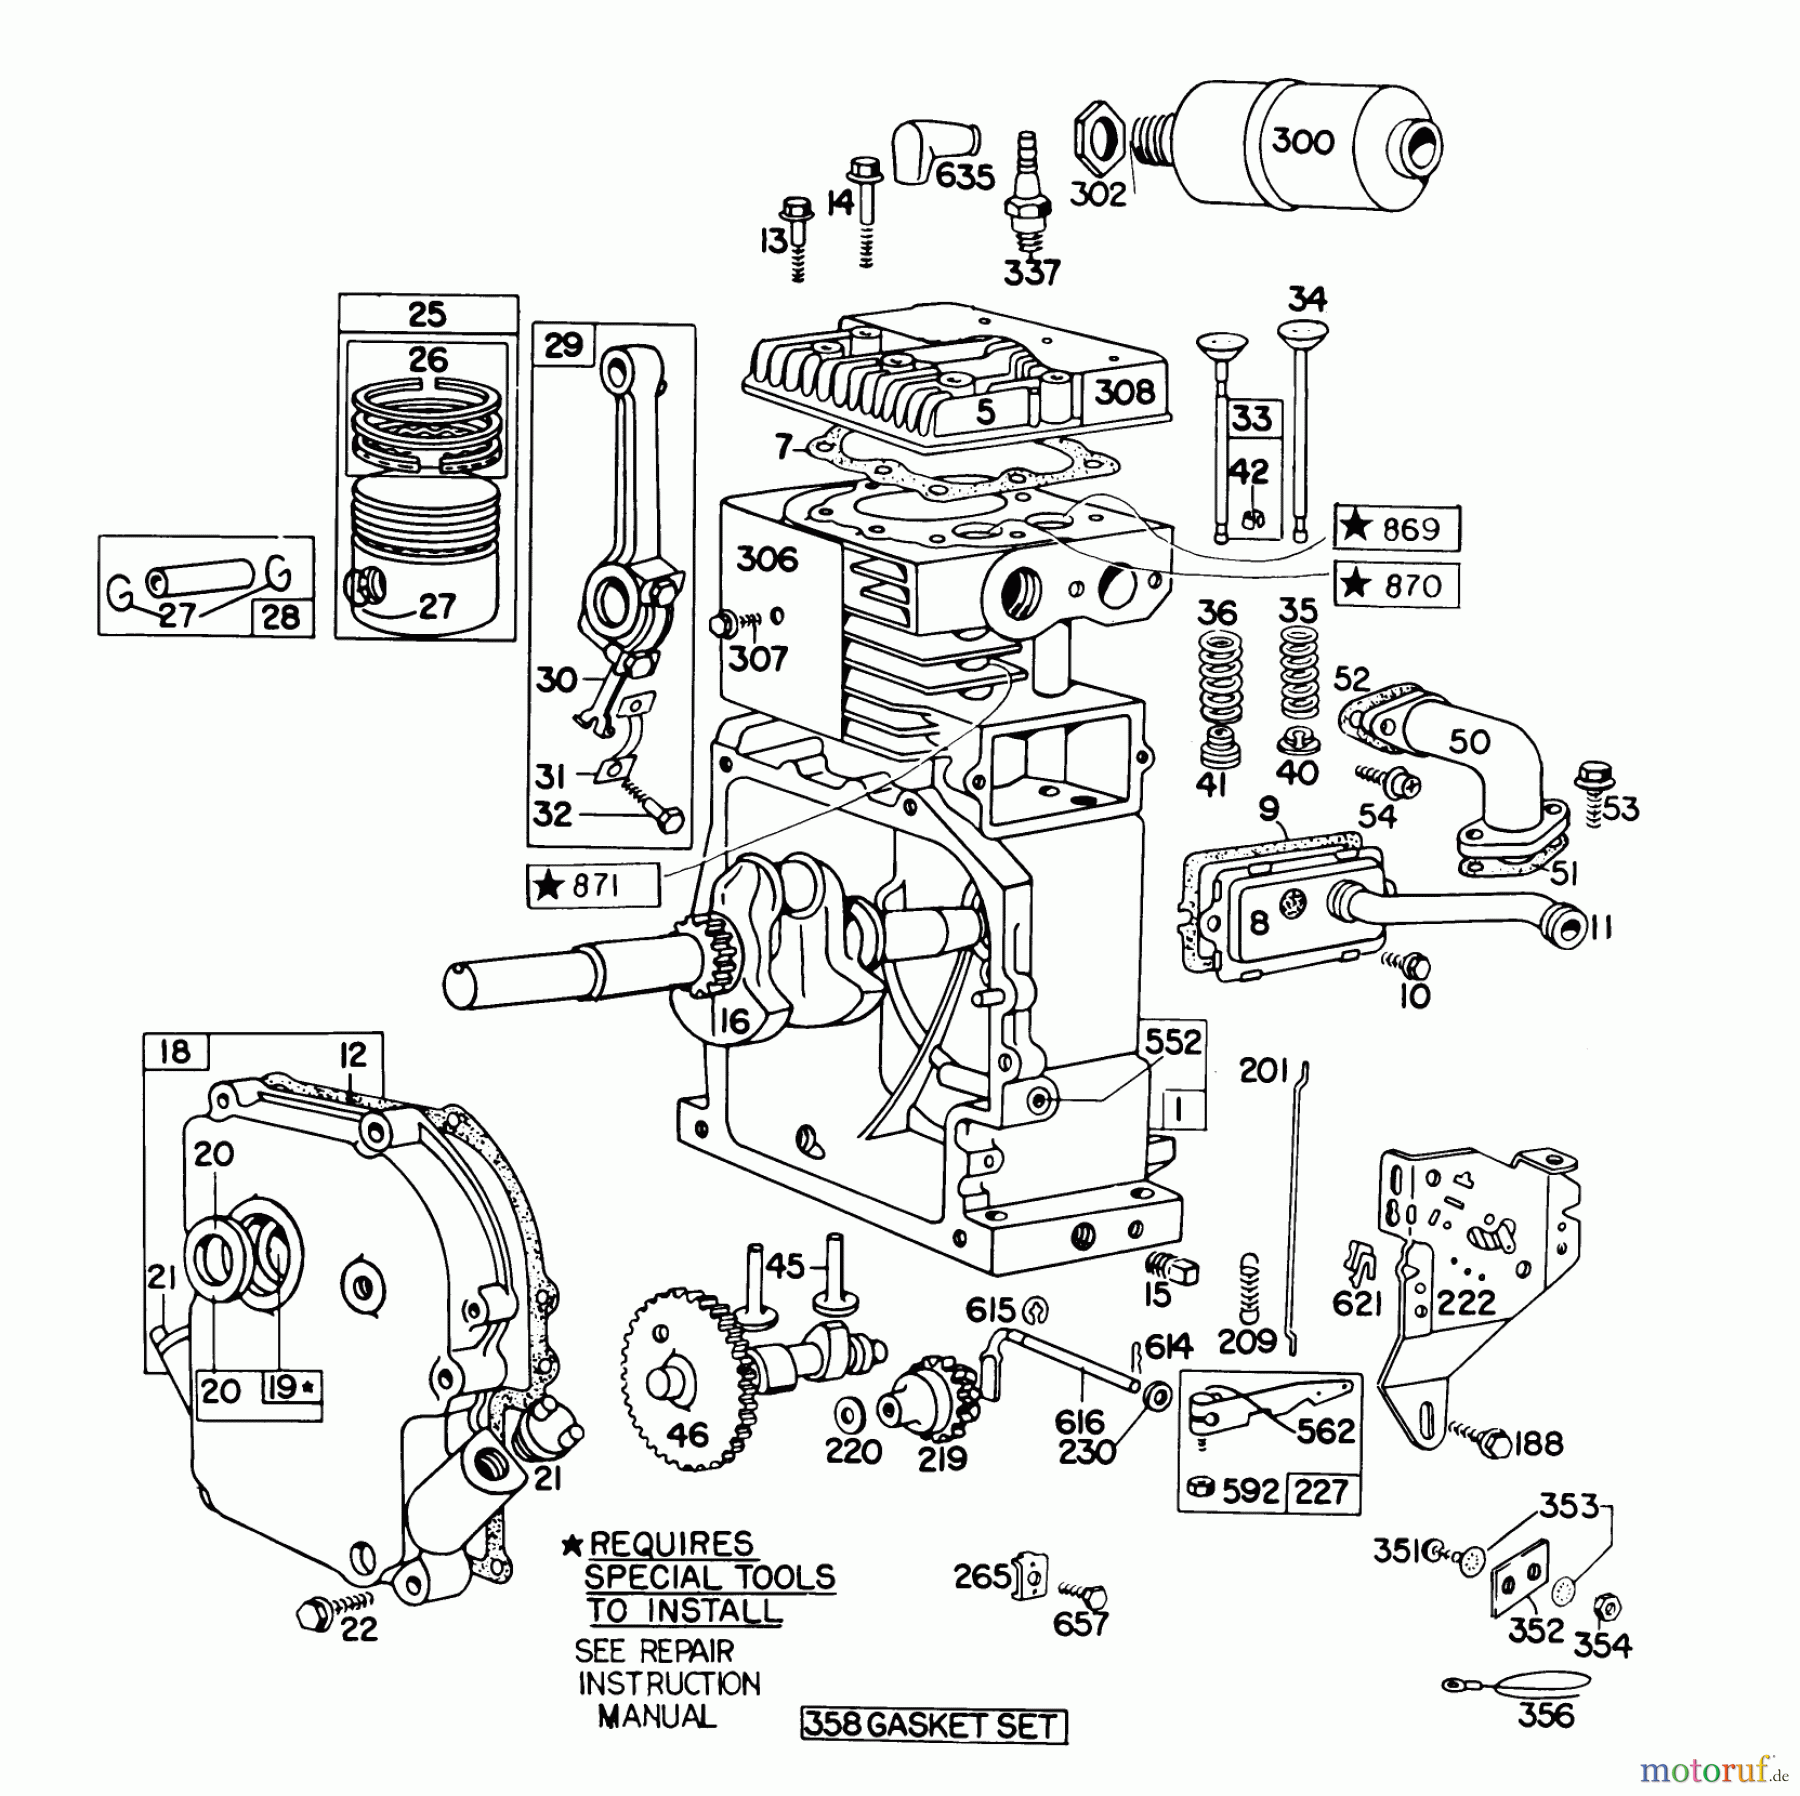 300
635
302
14
13
337
25
34
26
29
308
5
33
7
42
★ 869
306
★ 870
27
27
28
36
35
307
30
52
50
31
41
40
32
54
53
9
★ 871
51
8
11
10
16
552
18
12
201
1
20
21
45
615
15
621
222
209
614
20
19★
46
616
562
220
219
230
188
21
592
227
353
★REQUIRES
SPECIAL TOOLS
TO INSTALL
351
265
22
657
352
354
SEE REPAIR
INSTRUCTION
MANUAL
356
358 GASKET SET
motoruf.de